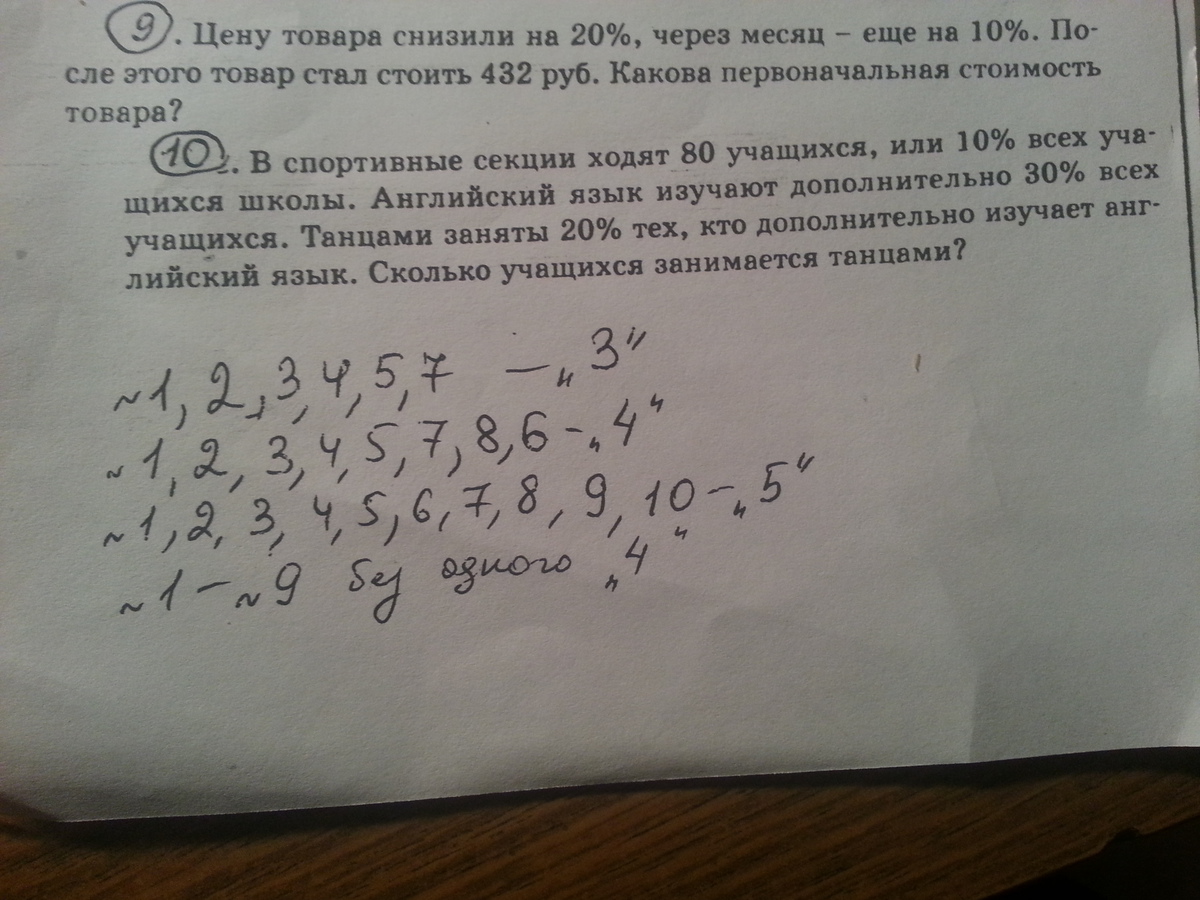 9. Цену товара снизили на 20%, через месяц – еще на 10%. По-
сле этого товар стал стоить 432 руб. Какова первоначальная стоимость
товара?
10. В спортивные секции ходят 80 учащихся, или 10% всех уча-
щихся школы. Английский язык изучают дополнительно 30% всех
учащихся. Танцами заняты 20% тех, кто дополнительно изучает анг-
лийский язык. Сколько учащихся занимается танцами?
~1, 2, 3, 4, 5, 7 – „3"
~1, 2, 3, 4, 5, 7, 8, 6 – „4"
~1, 2, 3, 4, 5, 6, 7, 8, 9, 10 – „5"
~1 – ~9 без одного „4"